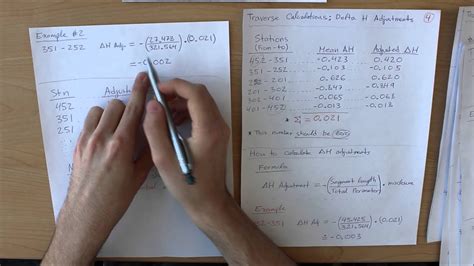 Example #2
351 - 252 ΔH Adj. = -(27.473/321.564) · (0.021)
= -0.002
Stn
452
351
251
Traverse Calculations: Delta H Adjustments
4
Stations
(from-to)
Mean ΔH
Adjusted ΔH
452-351
-0.423
0.420
351-
-0.103
-0.105
0.626
0.620
-0.349
201-401
-0.300
-0.301
401-402
-0.065
402-
-0.013
Σ = 0.021
* This number should be zero
How to calculate ΔH adjustments
Formula
ΔH Adjustment = -(Segment Length/Total Perimeter) · misclosure
Example
ΔH Adj. = -(45.425/321.564) · (0.021)
= -0.003